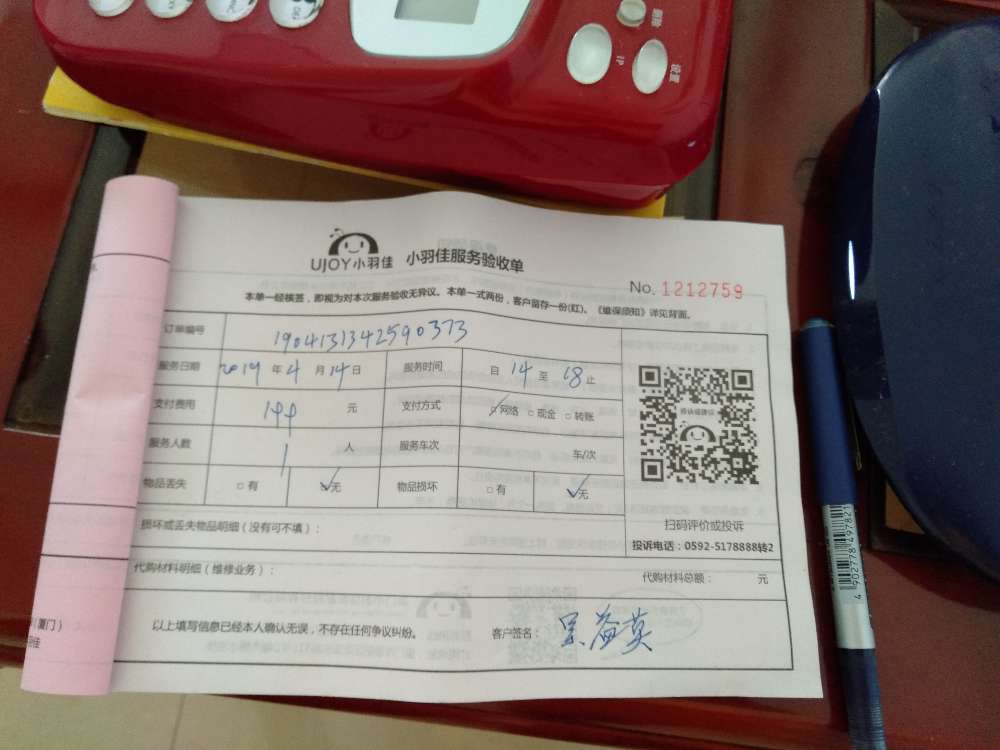 重拨
IP
设置
UJOY小羽佳 小羽佳服务验收单
No. 1212759
本单一经核签，即视为对本次服务验收无异议。本单一式两份，客户留存一份(红)。《维保须知》详见背面。
订单编号 1904131342590373
服务日期 2019 年 4 月 14 日 服务时间 自 14 至 18 止
支付费用 144 元 支付方式 ☑网络 □现金 □转账
服务人数 1 人 服务车次 车/次
物品丢失 □有 ☑无 物品损坏 □有 ☑无
扫码评价或投诉
投诉电话：0592-5178888转2
损坏或丢失物品明细（没有可不填）：
代购材料明细（维修业务）： 代购材料总额： 元
以上填写信息已经本人确认无误，不存在任何争议纠纷。 客户签名：
厦门）
4 902778 497821